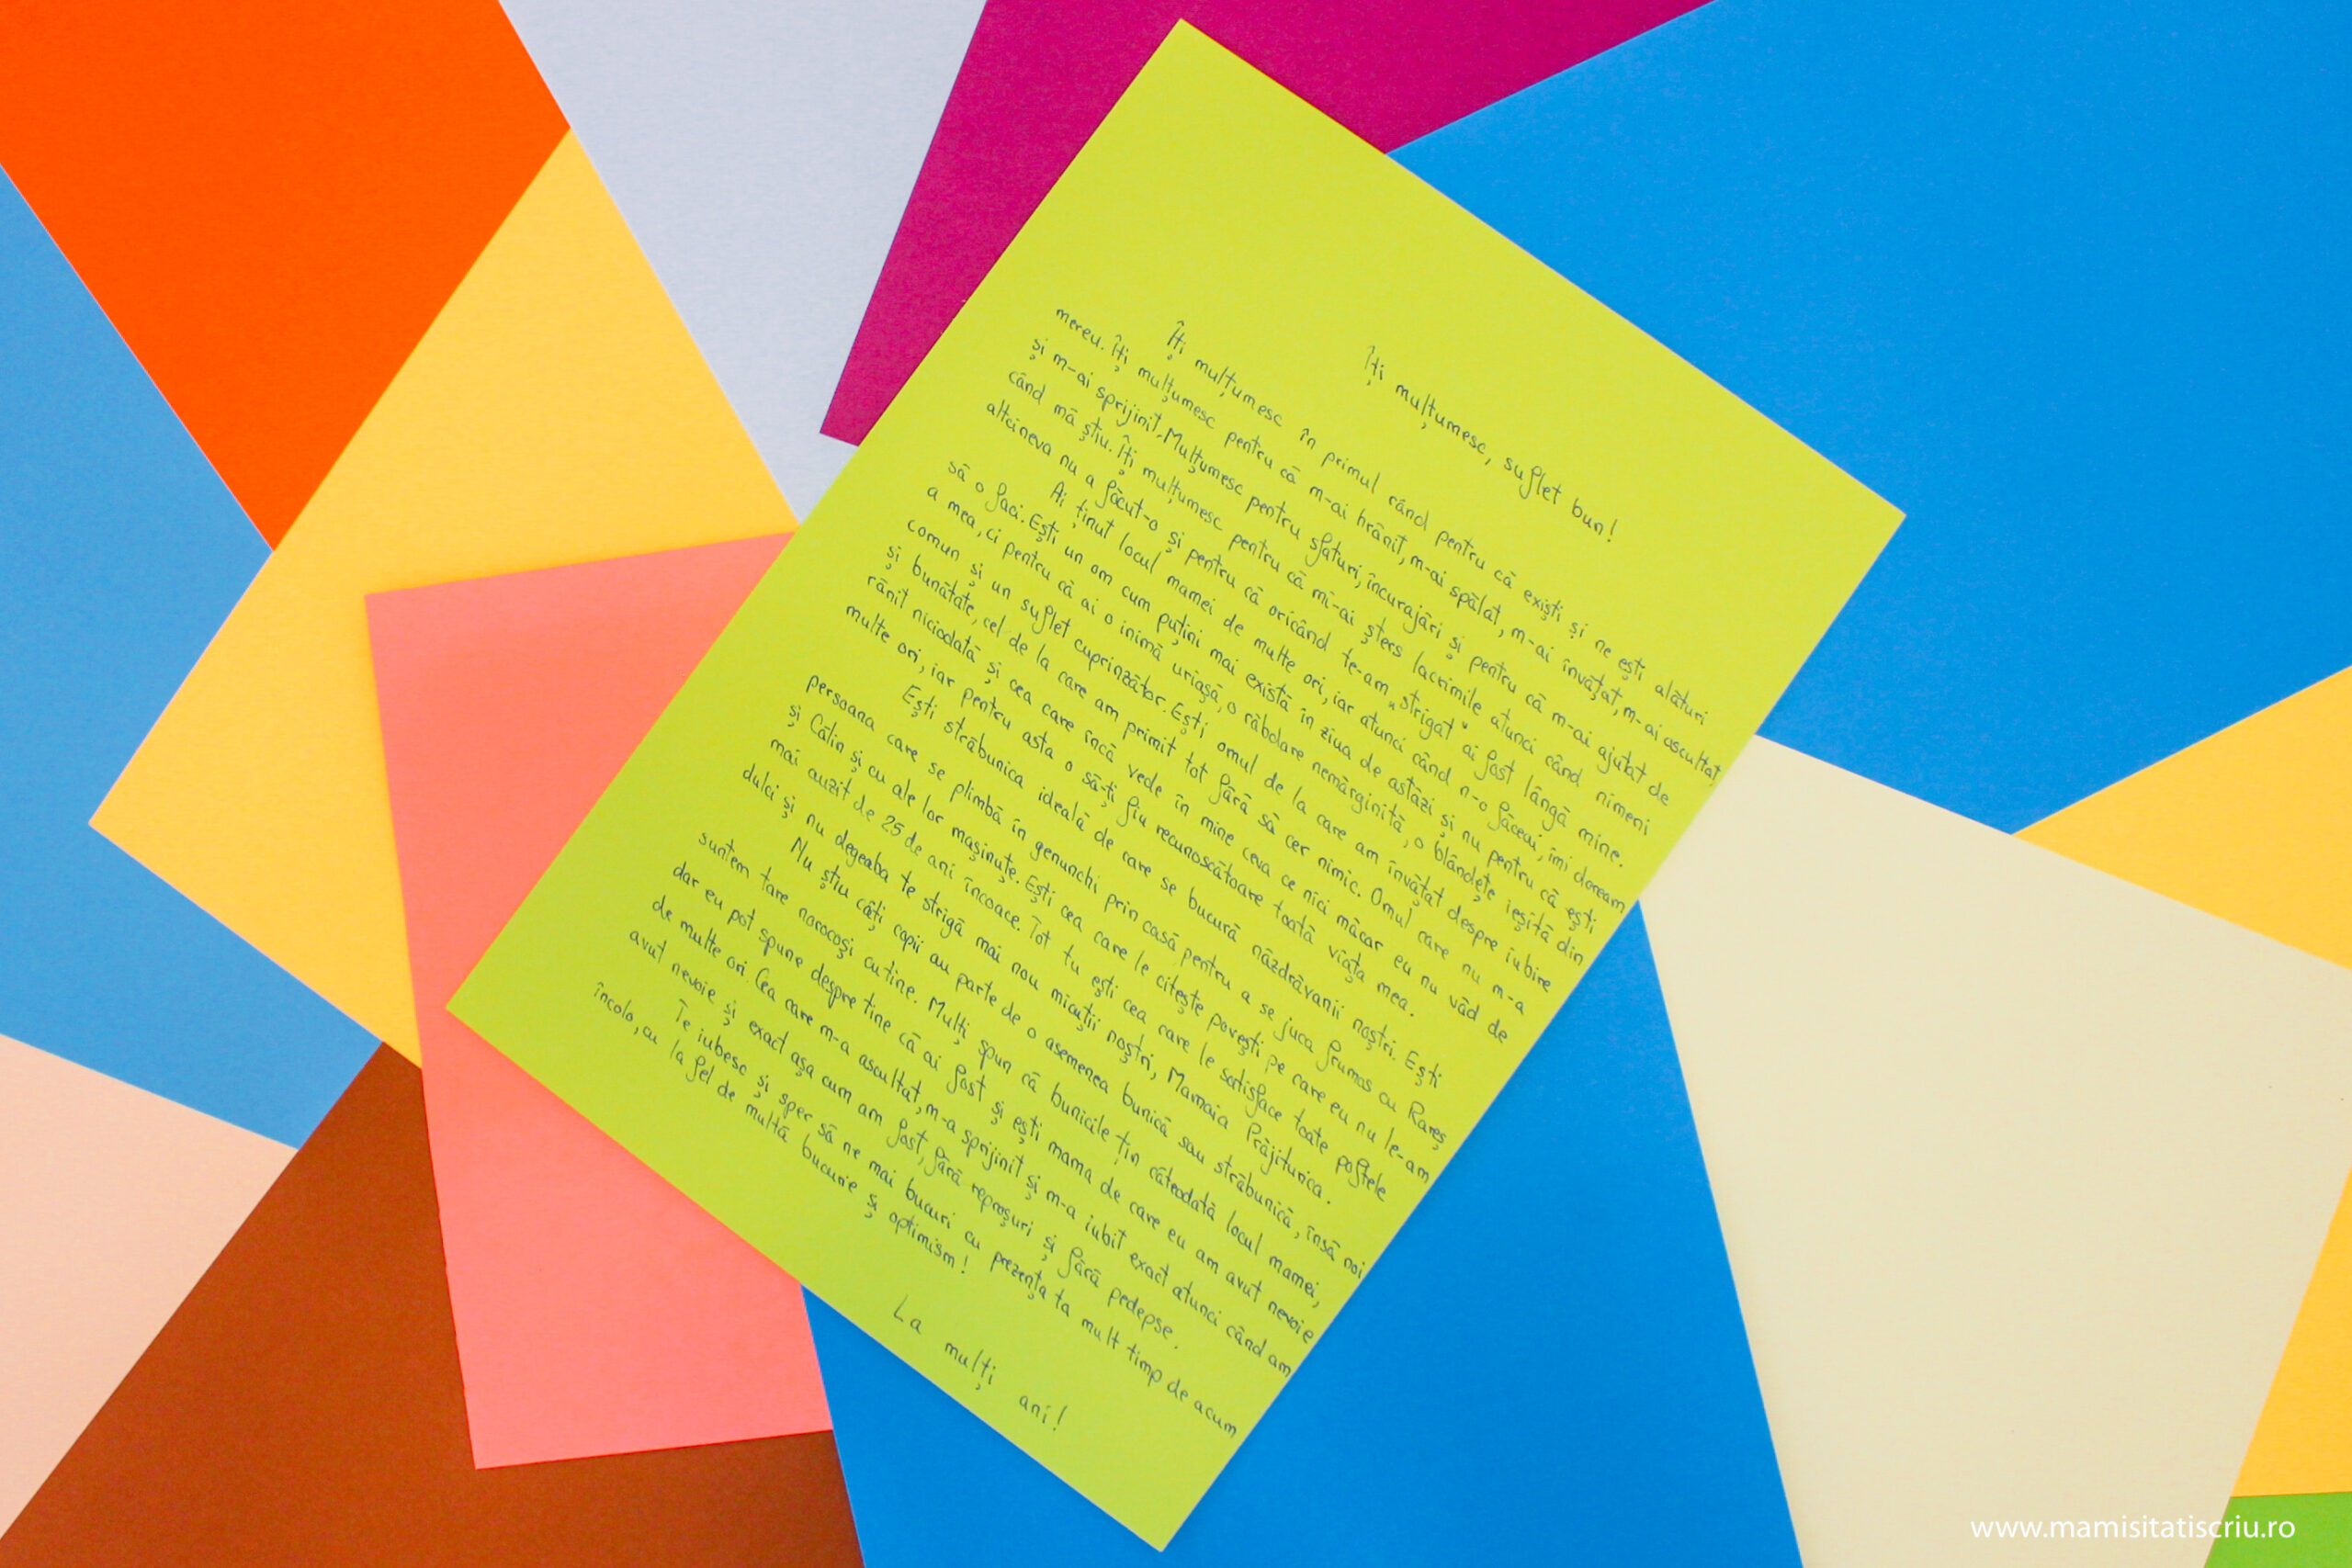 Îți mulțumesc, suflet bun!
Îți mulțumesc în primul rând pentru că existi și ne ești alături
mereu. Îți mulțumesc pentru că m-ai hrănit, m-ai spălat, m-ai învățat, m-ai ascultat
și m-ai sprijinit. Mulțumesc pentru sfaturi, încurajări și pentru că m-ai ajutat de
când mă știu. Îți mulțumesc pentru că mi-ai șters lacrimile atunci când nimeni
altcineva nu a făcut-o și pentru că oricând te-am "strigat" ai fost lângă mine.
Ai ținut locul mamei de multe ori, iar atunci când n-o făceai, îmi doream
să o faci. Ești un om cum puțini mai există în ziua de astăzi și nu pentru că ești
a mea, ci pentru că ai o inimă uriașă, o răbdare nemărginită, o blândețe ieșită din
comun și un suflet cuprinzător. Ești omul de la care am învățat despre iubire
și bunătate, cel de la care am primit tot fără să cer nimic. Omul care nu m-a
rănit niciodată și cea care încă vede în mine ceva ce nici măcar eu nu văd de
multe ori, iar pentru asta o să-ți fiu recunoscătoare toată viața mea.
Ești străbunica ideală de care se bucură năzdrăvanii noștri. Ești
persoana care se plimbă în genunchi prin casă pentru a se juca frumos cu Rareș
și Călin și cu ale lor mașinuțe. Ești cea care le citește povești pe care eu nu le-am
mai auzit de 25 de ani încoace. Tot tu ești cea care le satisface toate poftele
dulci și nu degeaba te strigă mai nou micuții noștri, Mamaia Prăjiturica.
Nu știu câți copii au parte de o asemenea bunică sau străbunică, însă noi
suntem tare norocoși cu tine. Mulți spun că bunicile țin câteodată locul mamei,
dar eu pot spune despre tine că ai fost și ești mama de care eu am avut nevoie
de multe ori. Cea care m-a ascultat, m-a sprijinit și m-a iubit exact atunci când am
avut nevoie și exact așa cum am fost, fără reproșuri și fără pedepse.
Te iubesc și sper să ne mai bucuri cu prezența ta mult timp de acum
încolo, cu la fel de multă bucurie și optimism!
La mulți ani!
www.mamisitatiscriu.ro